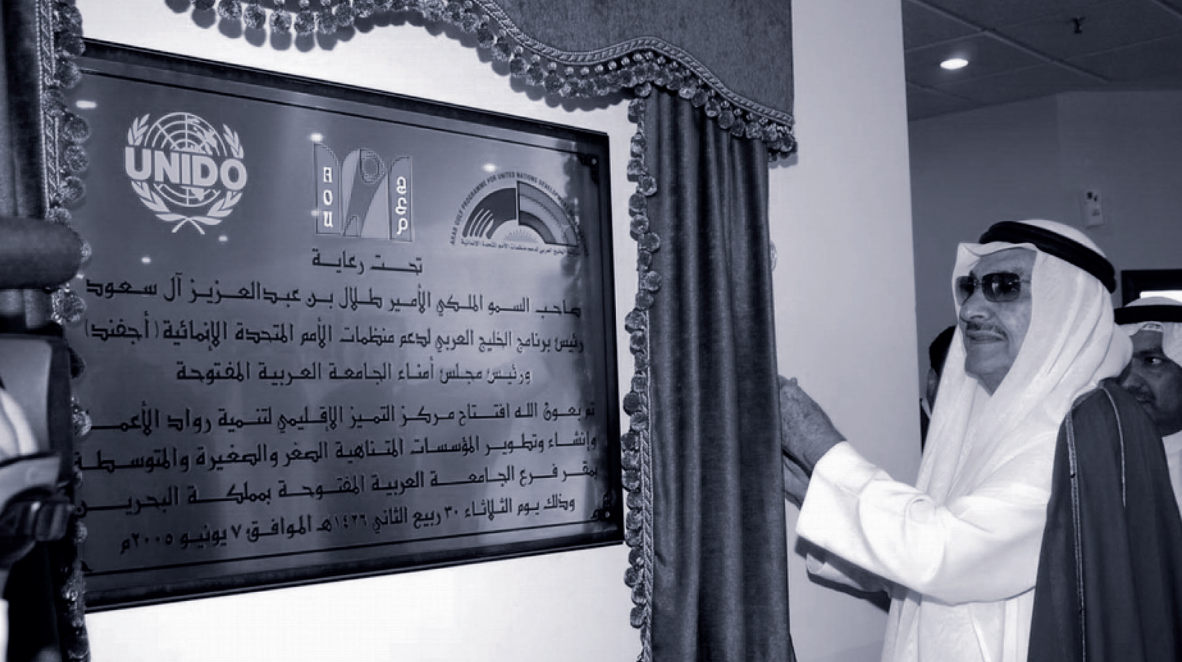 UNIDO
AOU
ARAB GULF PROGRAMME FOR UNITED NATIONS DEVELOPMENT
الخليج العربي لدعم منظمات الأمم المتحدة الإنمائية
تحت رعاية
صاحب السمو الملكي الأمير طلال بن عبدالعزيز آل سعود
رئيس برنامج الخليج العربي لدعم منظمات الأمم المتحدة الإنمائية (أجفند)
ورئيس مجلس أمناء الجامعة العربية المفتوحة
تم بعون الله افتتاح مركز التميز الإقليمي لتنمية رواد الأعمـ
وإنشاء وتطوير المؤسسات المتناهية الصغر والصغيرة والمتوسطة
بمقر فرع الجامعة العربية المفتوحة بمملكة البحرين
وذلك يوم الثلاثاء ٣٠ ربيع الثاني ١٤٢٦هـ الموافق ٧ يونيو ٢٠٠٥م